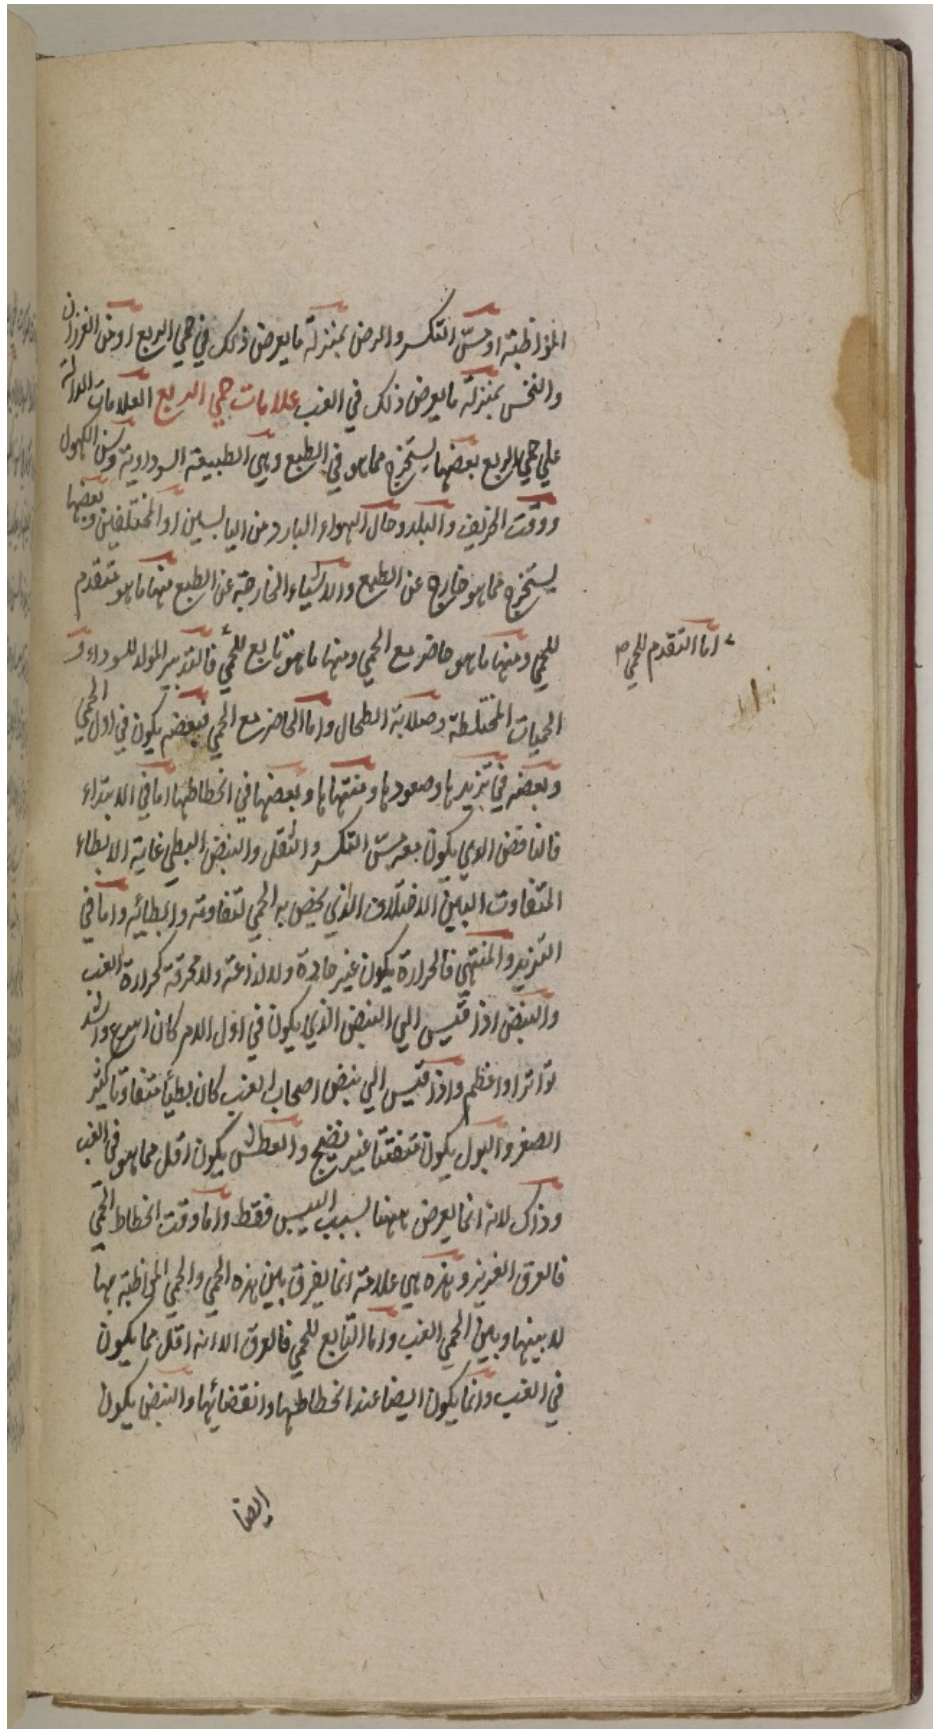 المواظبة او حسّ التكسر والرض بمنزلة ما يعرض ذلك في حمي الربع او من الغرزان
والنخس بمنزلة ما يعرض ذلك في الغب علامات حمي الربع العلامات الدالة
علي حمي الربع بعضها يستخرج مما هو في الطبع وهي الطبيعة السوداوية وسن الكهول
ووقت الخريف والبلد وحال الهواء البارد من اليابسين او المختلفين وبعضها
يستخرج مما هو خارج عن الطبع والاشياء الخارجة عن الطبع منها ما هو متقدم
للحمي ومنها ما هو حاضر مع الحمي ومنها ما هو تابع للحمي فالتدبير المولد للسوداء و
اما التقدم للحمي
الحميات المختلطة وصلابة الطحال واما الحاضر مع الحمي فبعضه يكون في اول الحمي
وبعضه في تزيدها وصعودها ومنتهاها وبعضها في انحطاطها اما في الابتداء
فالنافض الذي يكون معه حسّ التكسر والثقل والنبض البطي غاية الابطاء
المتفاوت البين الاختلاف الذي يخص به الحمي لتفاوته وابطائه واما في
التزيد والمنتهي فالحرارة يكون غير حادة ولا لذاعة ولا محرقة كحرارة الغب
والنبض اذا قيس الي النبض الذي يكون في اول الدور كان اسرع واشد
تواترا واعظم واذا قيس الي نبض اصحاب الغب كان بطيأ متفاوتا كثير
الصغر والبول يكون متفننا غير نضيج والعطش يكون اقل مما هو في الغب
وذاك لانه انما يعرض ههنا بسبب اليبس فقط واما وقت انحطاط الحمي
فالعرق الغزيز وهذه هي علامة انما يفرق بين هذه الحمي والحمي المواظبة بها
لا بينها وبين الحمي الغب واما التابع للحمي فالعرق الا انه اقل مما يكون
في الغب وانما يكون ايضا عند انحطاطها وانقضائها والنبض يكون
ايضا